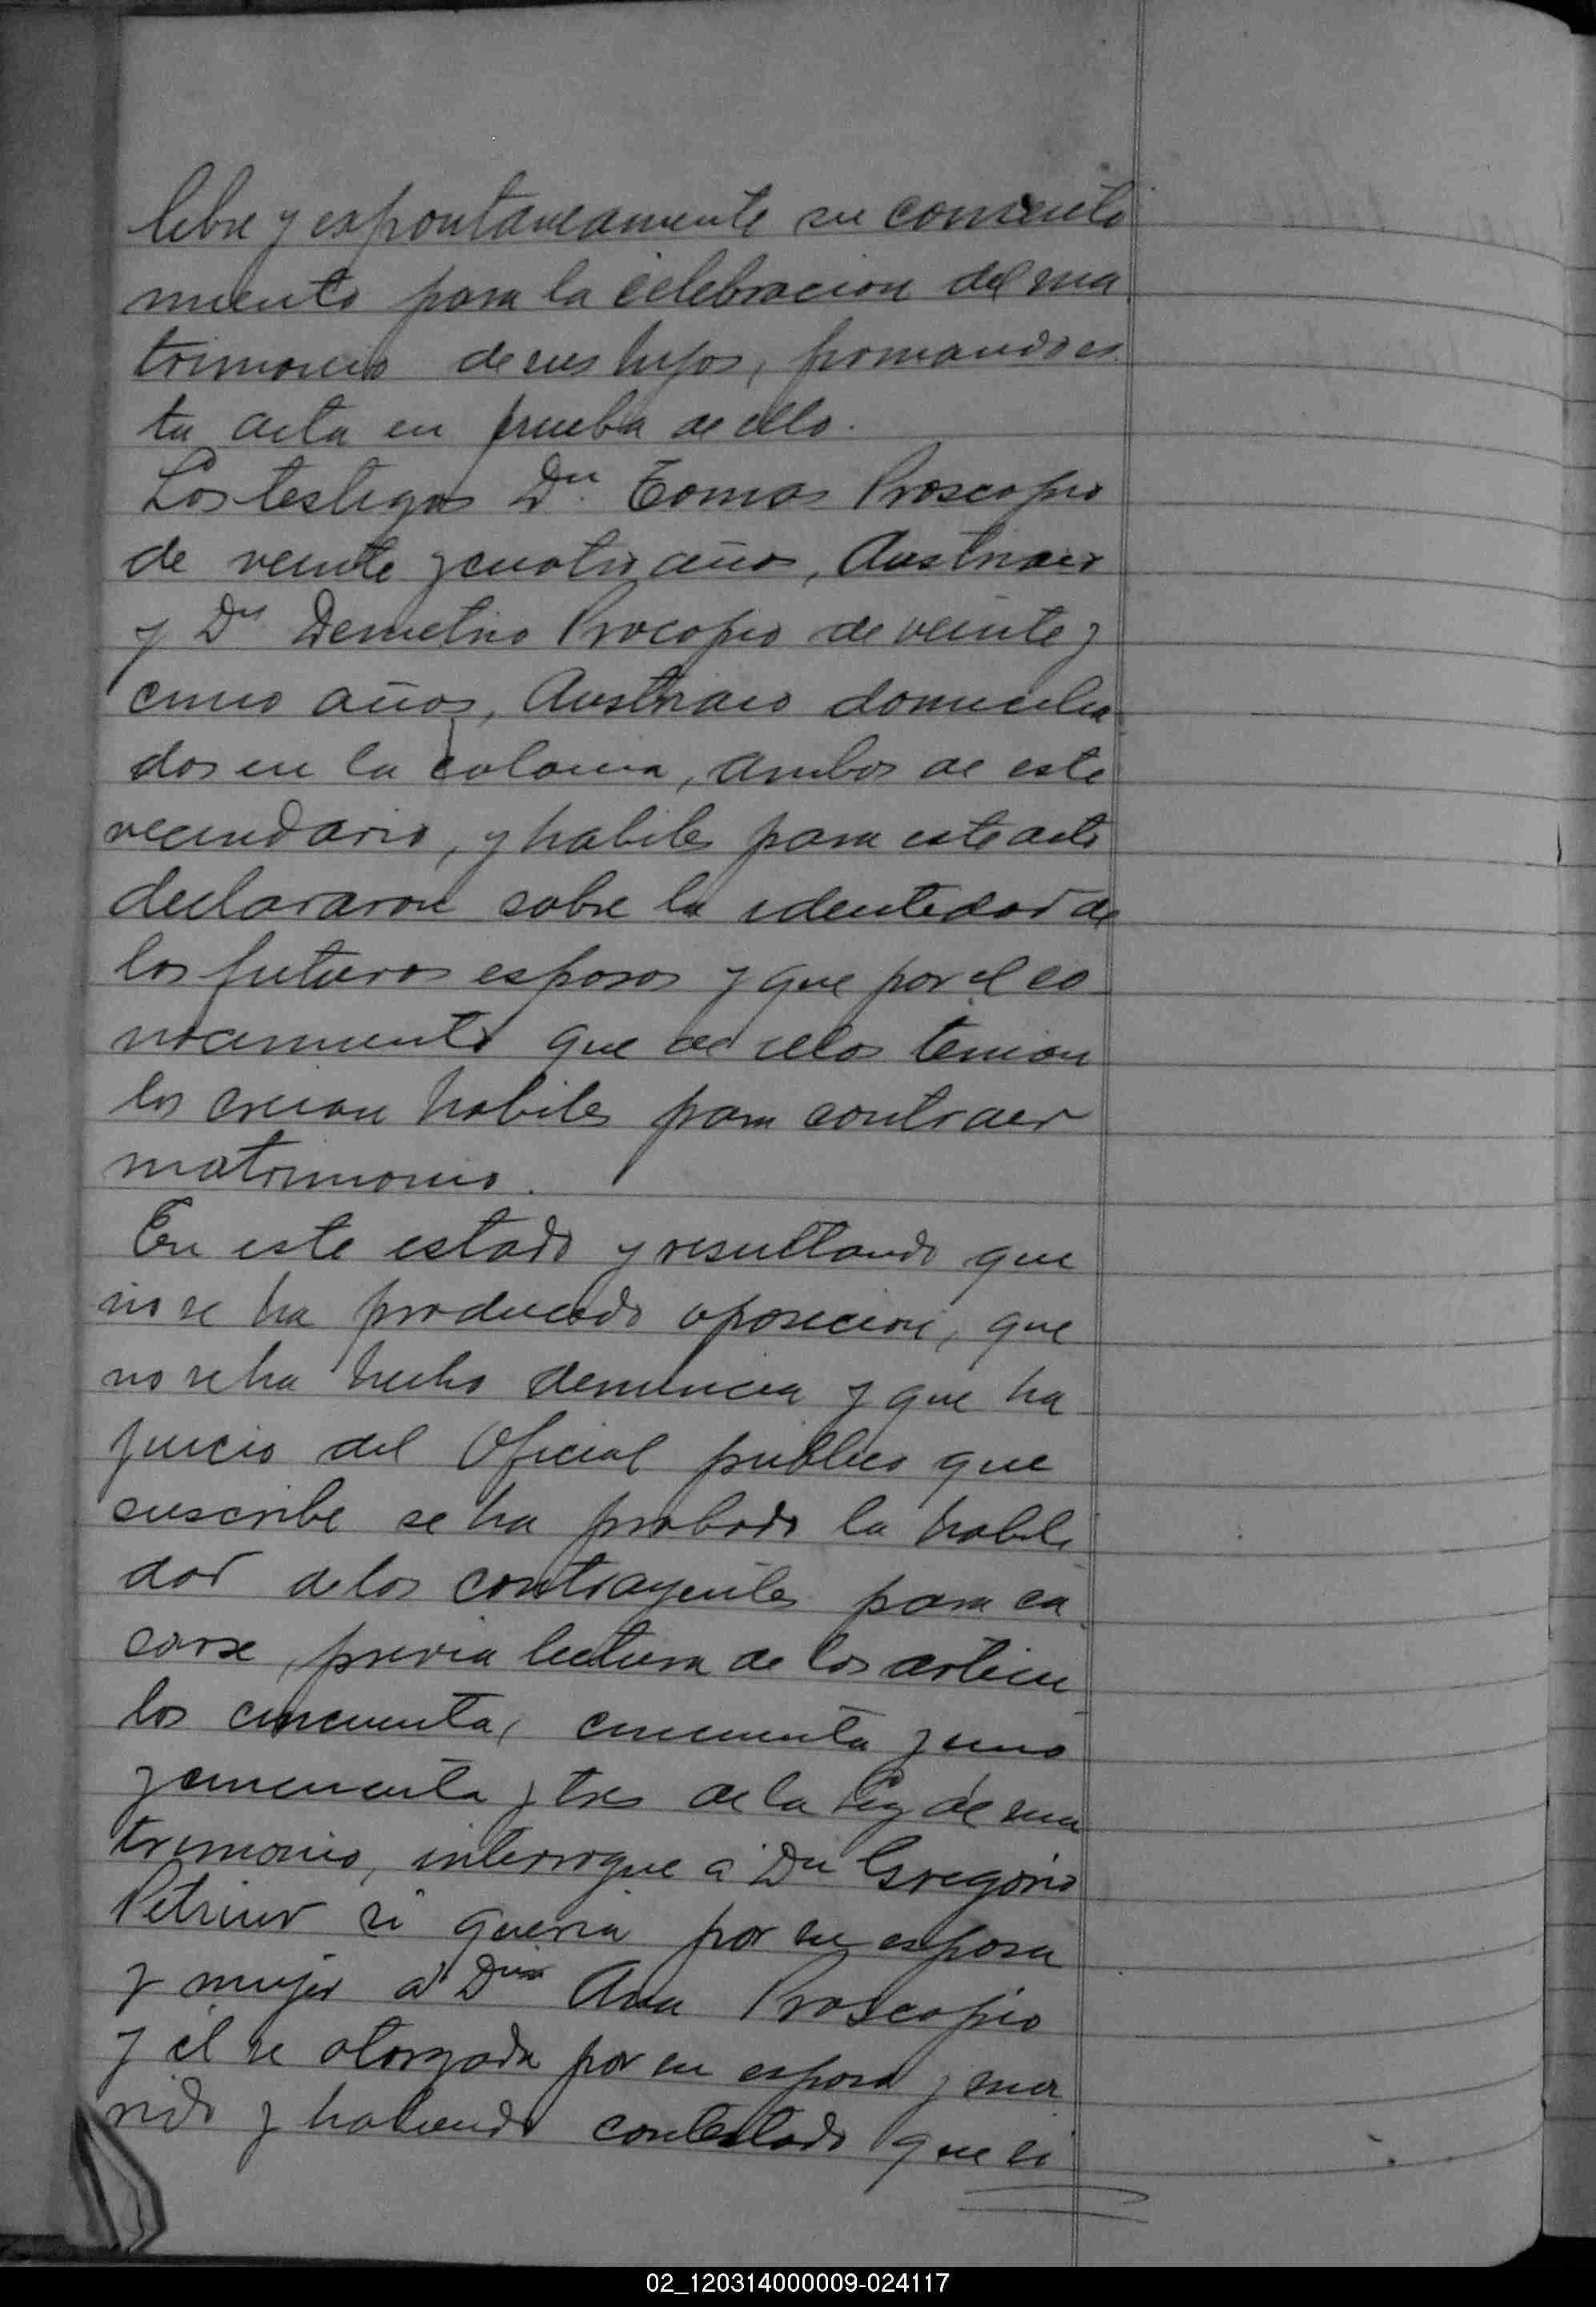 libre y espontaneamente su consenti
miento para la celebracion del ma
trimonio de sus hijos, firmando es
ta acta en prueba de ello.
Los testigos Dn. Tomas Proscopio
de veinte y cuatro años, Austriaco
y Dn Demetrio Procopio de veinte y
cinco años, Austriaco domicilia
dos en la colonia, ambos de este
vecindario, y habiles para este acto
declararon sobre la identidad de
los futuros esposos y que por el co
nocimiento que de ellos tenian
los creian habiles para contraer
matrimonio.
En este estado y resultando que
no se ha producido oposicion, que
no se ha hecho denuncia y que ha
juicio del Oficial publico que
suscribe se ha probado la habili
dad de los contrayentes para ca
sarse, previa lectura de los articu
los cincuenta, cincuenta y uno
y cincuenta y tres de la Ley de ma
trimonio, interrogue a Dn Gregorio
Petriw si queria por su esposa
y mujer a Dña Ana Proscopio
y él se otorgada por su esposo y ma
rido y habiendo contestado que si
02_120314000009-024117